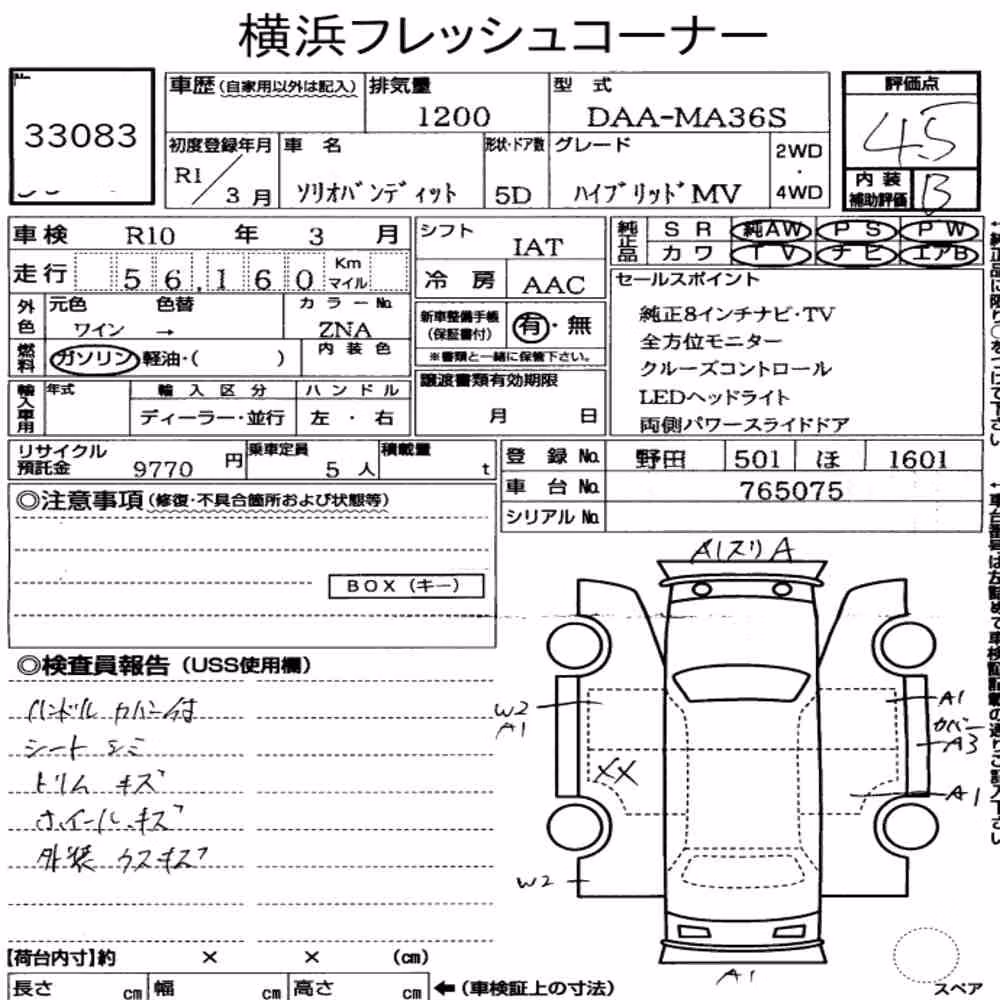 横浜フレッシュコーナー
33083
車歴(自家用以外は記入) 排気量 1200 型 式 DAA-MA36S 評価点 4.5
初度登録年月 R1/3月 車 名 ソリオバンディット 形状・ドア数 5D グレード ハイブリッドMV 2WD・4WD 内装補助評価 B
車検 R10 年 3 月
走行 56,160 Km マイル
外色 元色 ワイン 色替 → カラーNo. ZNA
燃料 ガソリン 軽油・( ) 内装色
輸入車用 年式 輸入区分 ディーラー・並行 ハンドル 左・右
シフト IAT
冷房 AAC
新車整備手帳(保証書付) 有・無
※書類と一緒に保管下さい。
譲渡書類有効期限
月 日
純正品 SR 純AW PS PW
カワ TV ナビ エアB
セールスポイント
純正8インチナビ・TV
全方位モニター
クルーズコントロール
LEDヘッドライト
両側パワースライドドア
リサイクル預託金 9770 円 乗車定員 5 人 積載量 t
登録No. 野田 501 ほ 1601
車台No. 765075
シリアルNo.
◎注意事項(修復・不具合箇所および状態等)
BOX(キー)
◎検査員報告(USS使用欄)
ハンドルカバー付
シートシミ
トリムキズ
ホイールキズ
外装ウスキズ
A1スリA
W2
A1
XX
W2
A1
カバー
A3
A1
A1
スペア
【荷台内寸】約 × × (cm)
長さ cm 幅 cm 高さ cm ←(車検証上の寸法)